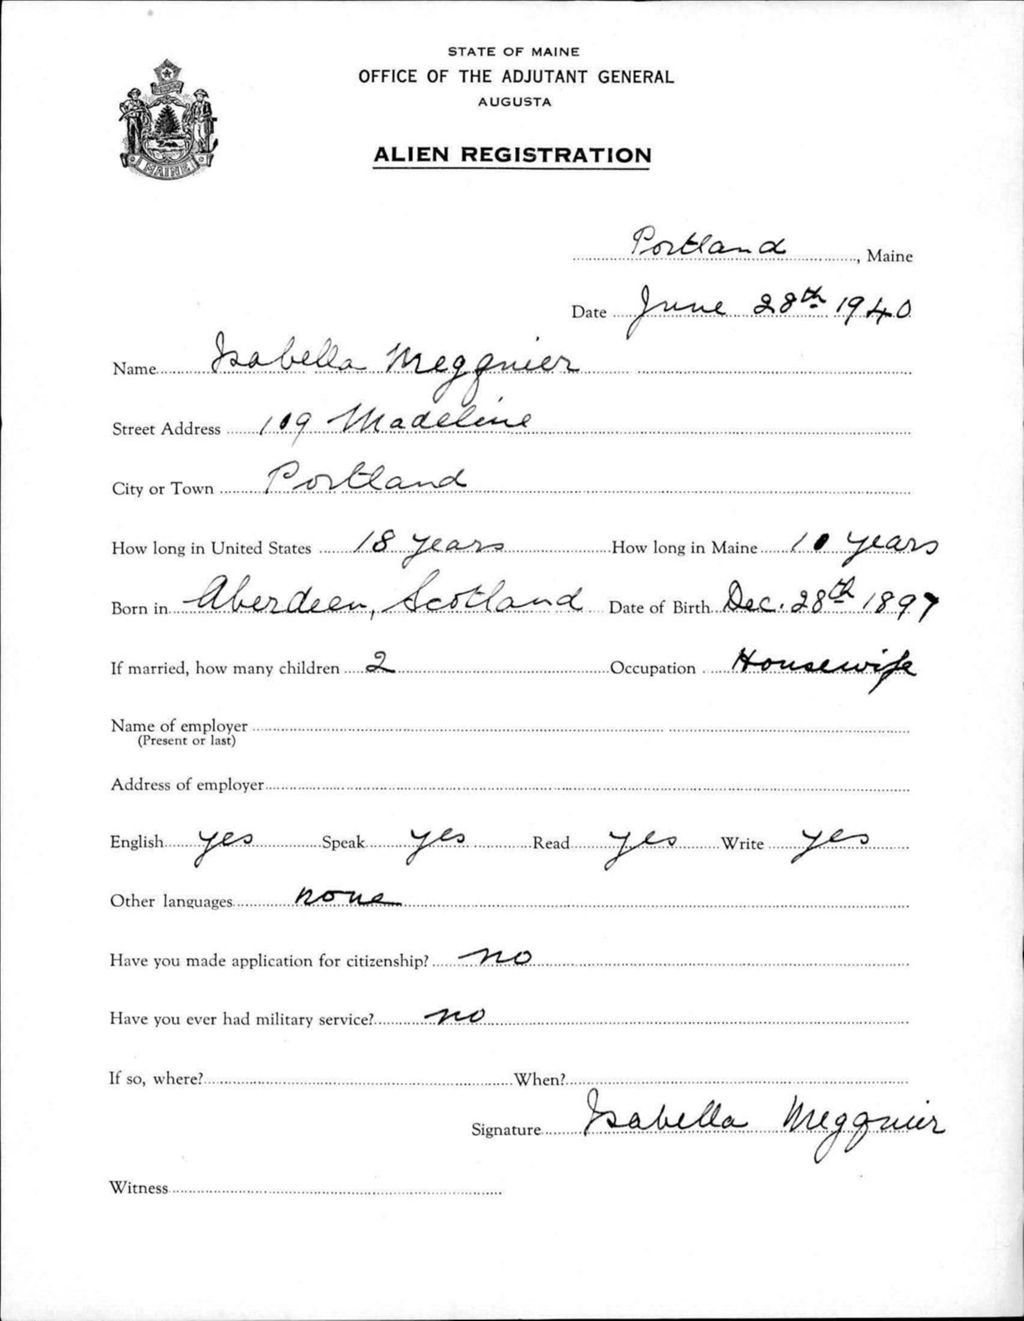 STATE OF MAINE
OFFICE OF THE ADJUTANT GENERAL
AUGUSTA
ALIEN REGISTRATION
MAINE
Portland, Maine
Date June 28th 1940
Name Isabella Meggnier
Street Address 109 Madeline
City or Town Portland
How long in United States 18 years How long in Maine 10 years
Born in Aberdeen, Scotland Date of Birth Dec. 28th 1897
If married, how many children 2 Occupation Housewife
Name of employer
(Present or last)
Address of employer
English yes Speak yes Read yes Write yes
Other languages none
Have you made application for citizenship? no
Have you ever had military service? no
If so, where? When?
Signature Isabella Meggnier
Witness